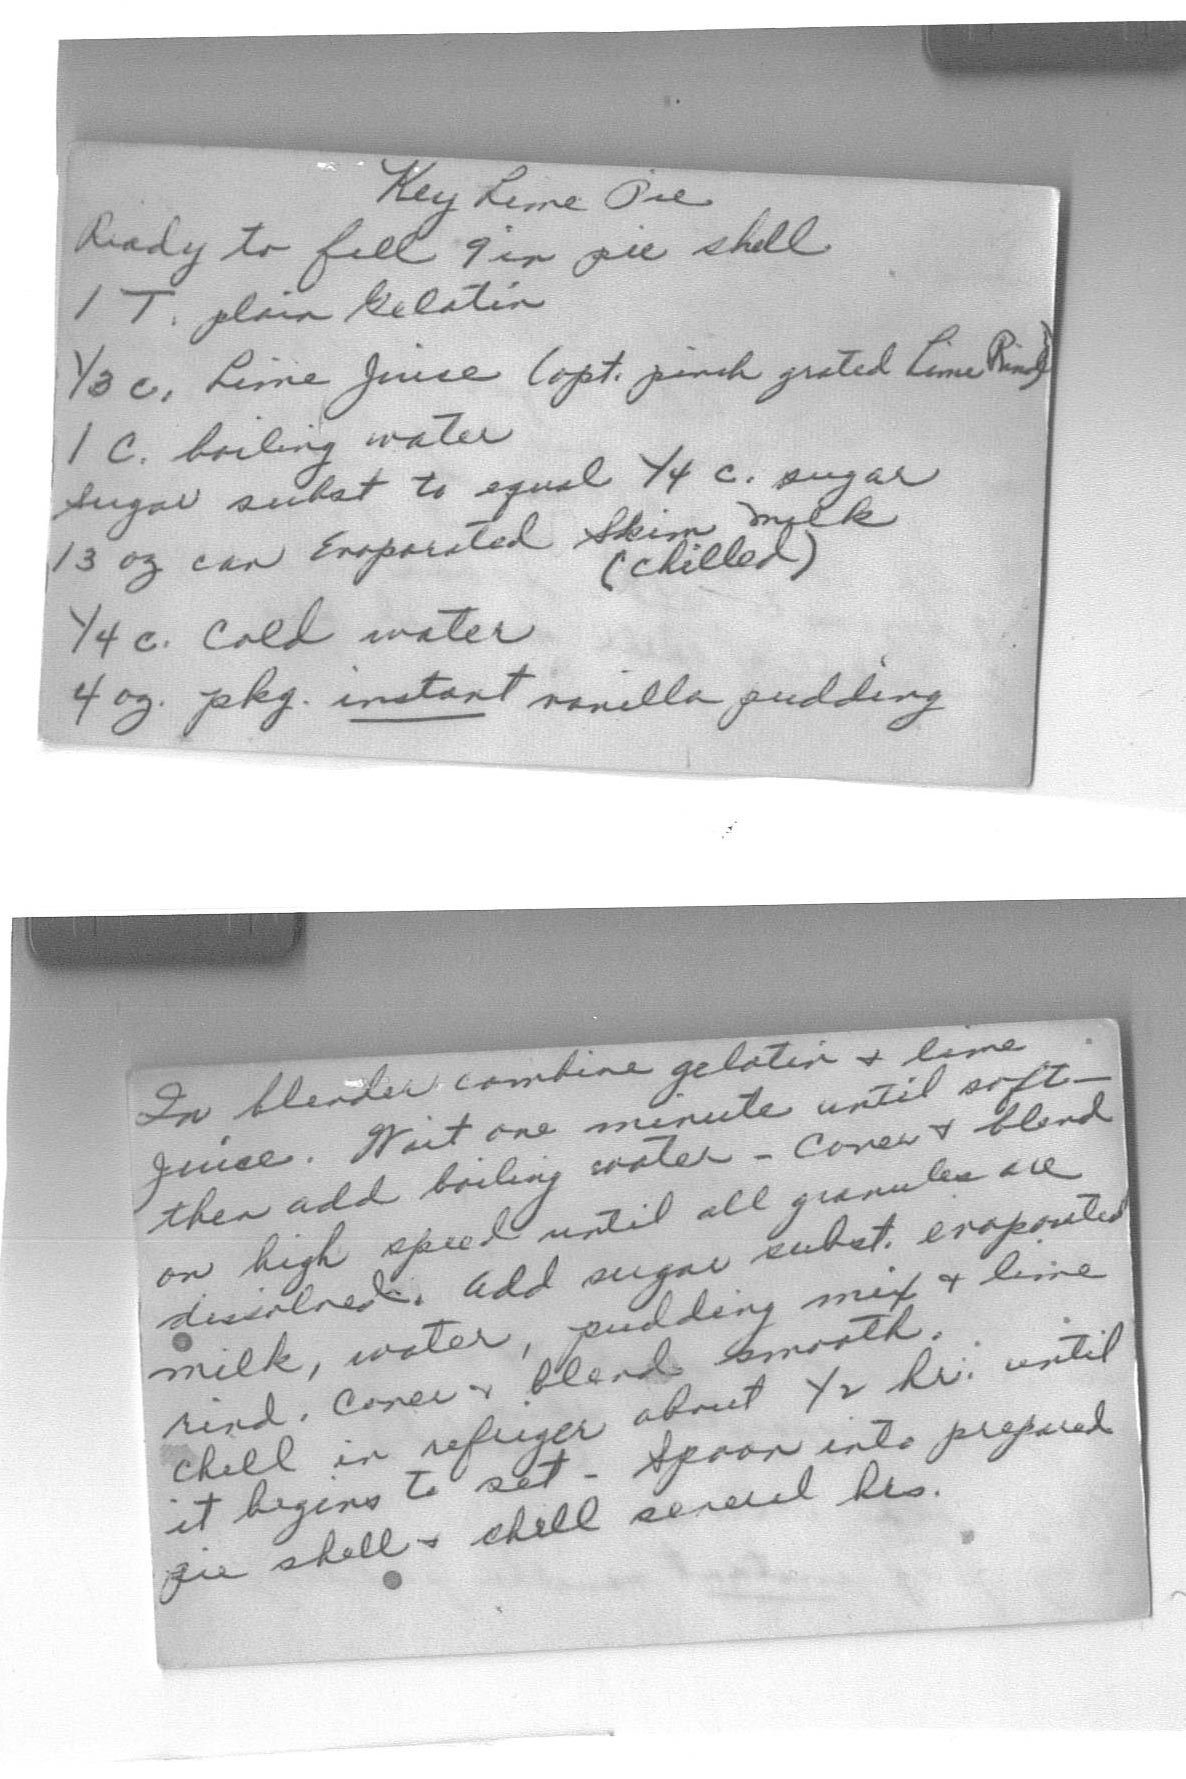 Key Lime Pie
Ready to fill 9 in pie shell
1 T. plain Gelatin
1/3 c. Lime Juice (opt. pinch grated Lime Rind)
1 C. boiling water
Sugar subst to equal 1/4 c. sugar
13 oz can Evaporated Skim milk
(chilled)
1/4 c. Cold water
4 oz. pkg. instant vanilla pudding
In blender combine gelatin + lime
Juice. Wait one minute until soft –
then add boiling water – Cover + blend
on high speed until all granules are
dissolved. Add sugar subst. evaporated
milk, water, pudding mix + lime
rind. Cover + blend smooth.
Chill in refriger about 1/2 hr. until
it begins to set – Spoon into prepared
pie shell + chill several hrs.